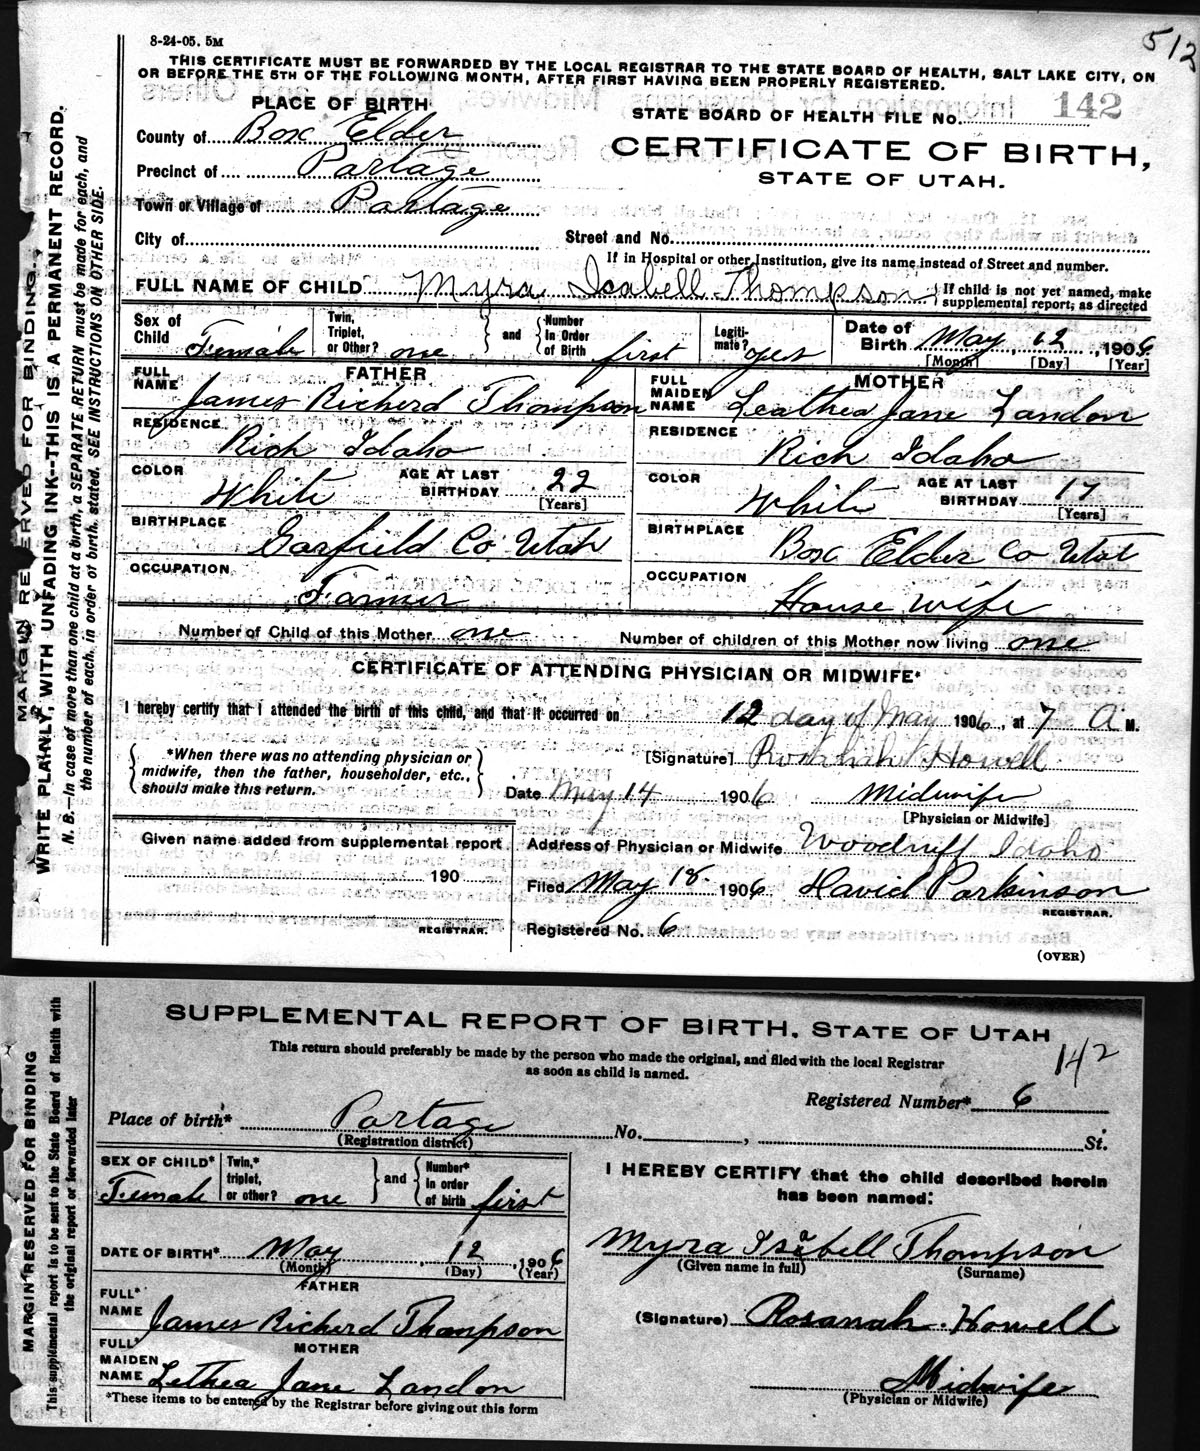 512
8-24-05. 5M
THIS CERTIFICATE MUST BE FORWARDED BY THE LOCAL REGISTRAR TO THE STATE BOARD OF HEALTH, SALT LAKE CITY, ON
OR BEFORE THE 5TH OF THE FOLLOWING MONTH, AFTER FIRST HAVING BEEN PROPERLY REGISTERED.
MARGIN RESERVED FOR BINDING.
WRITE PLAINLY, WITH UNFADING INK--THIS IS A PERMANENT RECORD.
N. B.—In case of more than one child at a birth, a SEPARATE RETURN must be made for each, and
the number of each, in order of birth, stated. SEE INSTRUCTIONS ON OTHER SIDE.
PLACE OF BIRTH
STATE BOARD OF HEALTH FILE No. 142
County of Box Elder
CERTIFICATE OF BIRTH,
Precinct of Portage
STATE OF UTAH.
Town or Village of Portage
City of Street and No.
If in Hospital or other Institution, give its name instead of Street and number.
FULL NAME OF CHILD Myra Isabell Thompson { If child is not yet named, make
supplemental report, as directed
Sex of Child Female Twin, Triplet, or Other? one } and { Number in Order of Birth first Legitimate? yes Date of Birth May, 12, 1906
[Month] [Day] [Year]
FATHER MOTHER
FULL NAME James Richerd Thompson FULL MAIDEN NAME Leathea Jane Landon
RESIDENCE Rich Idaho RESIDENCE Rich Idaho
COLOR White AGE AT LAST BIRTHDAY 22 [Years] COLOR White AGE AT LAST BIRTHDAY 17 [Years]
BIRTHPLACE Garfield Co Utah BIRTHPLACE Box Elder Co Utah
OCCUPATION Farmer OCCUPATION House wife
Number of Child of this Mother one Number of children of this Mother now living one
CERTIFICATE OF ATTENDING PHYSICIAN OR MIDWIFE*
I hereby certify that I attended the birth of this child, and that it occurred on 12 day of May 1906, at 7 A M.
{ *When there was no attending physician or
midwife, then the father, householder, etc.,
should make this return. }
[Signature] Howell
Date May 14 1906 Midwife
[Physician or Midwife]
Given name added from supplemental report
Address of Physician or Midwife Woodruff Idaho
190
Filed May 18 1906 David Parkinson
REGISTRAR.
REGISTRAR.
Registered No. 6
(OVER)
SUPPLEMENTAL REPORT OF BIRTH, STATE OF UTAH
This return should preferably be made by the person who made the original, and filed with the local Registrar
as soon as child is named.
142
MARGIN RESERVED FOR BINDING
This supplemental report is to be sent to the State Board of Health with
the original report or forwarded later
Registered Number* 6
Place of birth* Portage No. , St.
(Registration district)
SEX OF CHILD* Female Twin,* triplet, or other? one } and { Number* in order of birth first
I HEREBY CERTIFY that the child described herein
has been named:
DATE OF BIRTH* May 12, 1906
(Month) (Day) (Year)
Myra Isabell Thompson
(Given name in full) (Surname)
FATHER
FULL* NAME James Richerd Thompson
(Signature) Rosanah Howell
MOTHER
FULL* MAIDEN NAME Lethea Jane Landon
Midwife
(Physician or Midwife)
*These items to be entered by the Registrar before giving out this form